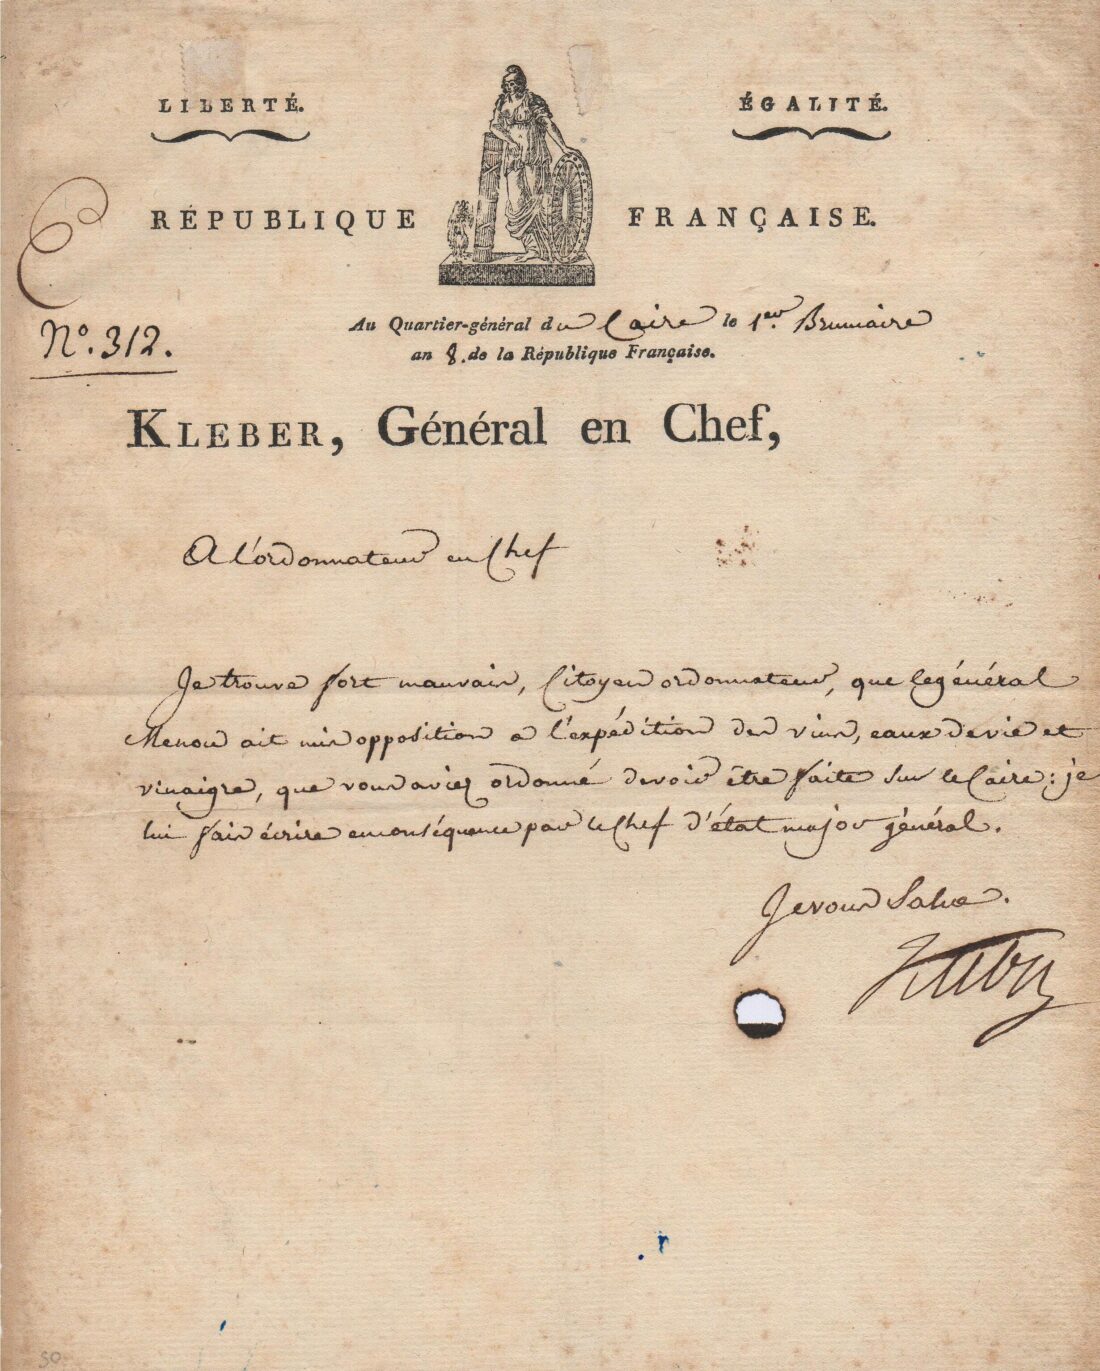 LIBERTÉ. ÉGALITÉ.
RÉPUBLIQUE FRANÇAISE.
N.º 312.
Au Quartier-général du Caire le 1.er Brumaire
an 8. de la République Française.
KLEBER, Général en Chef,
A l'ordonnateur en Chef
Je trouve fort mauvais, Citoyen ordonnateur, que le général
Menou ait mis opposition a l'expédition des vins, eaux de vie et
vinaigre, que vous aviez ordonné devoir être faite sur le Caire; je
lui fais écrire en conséquence par le Chef d'état major général.
Je vous Salue.
Kleber
50